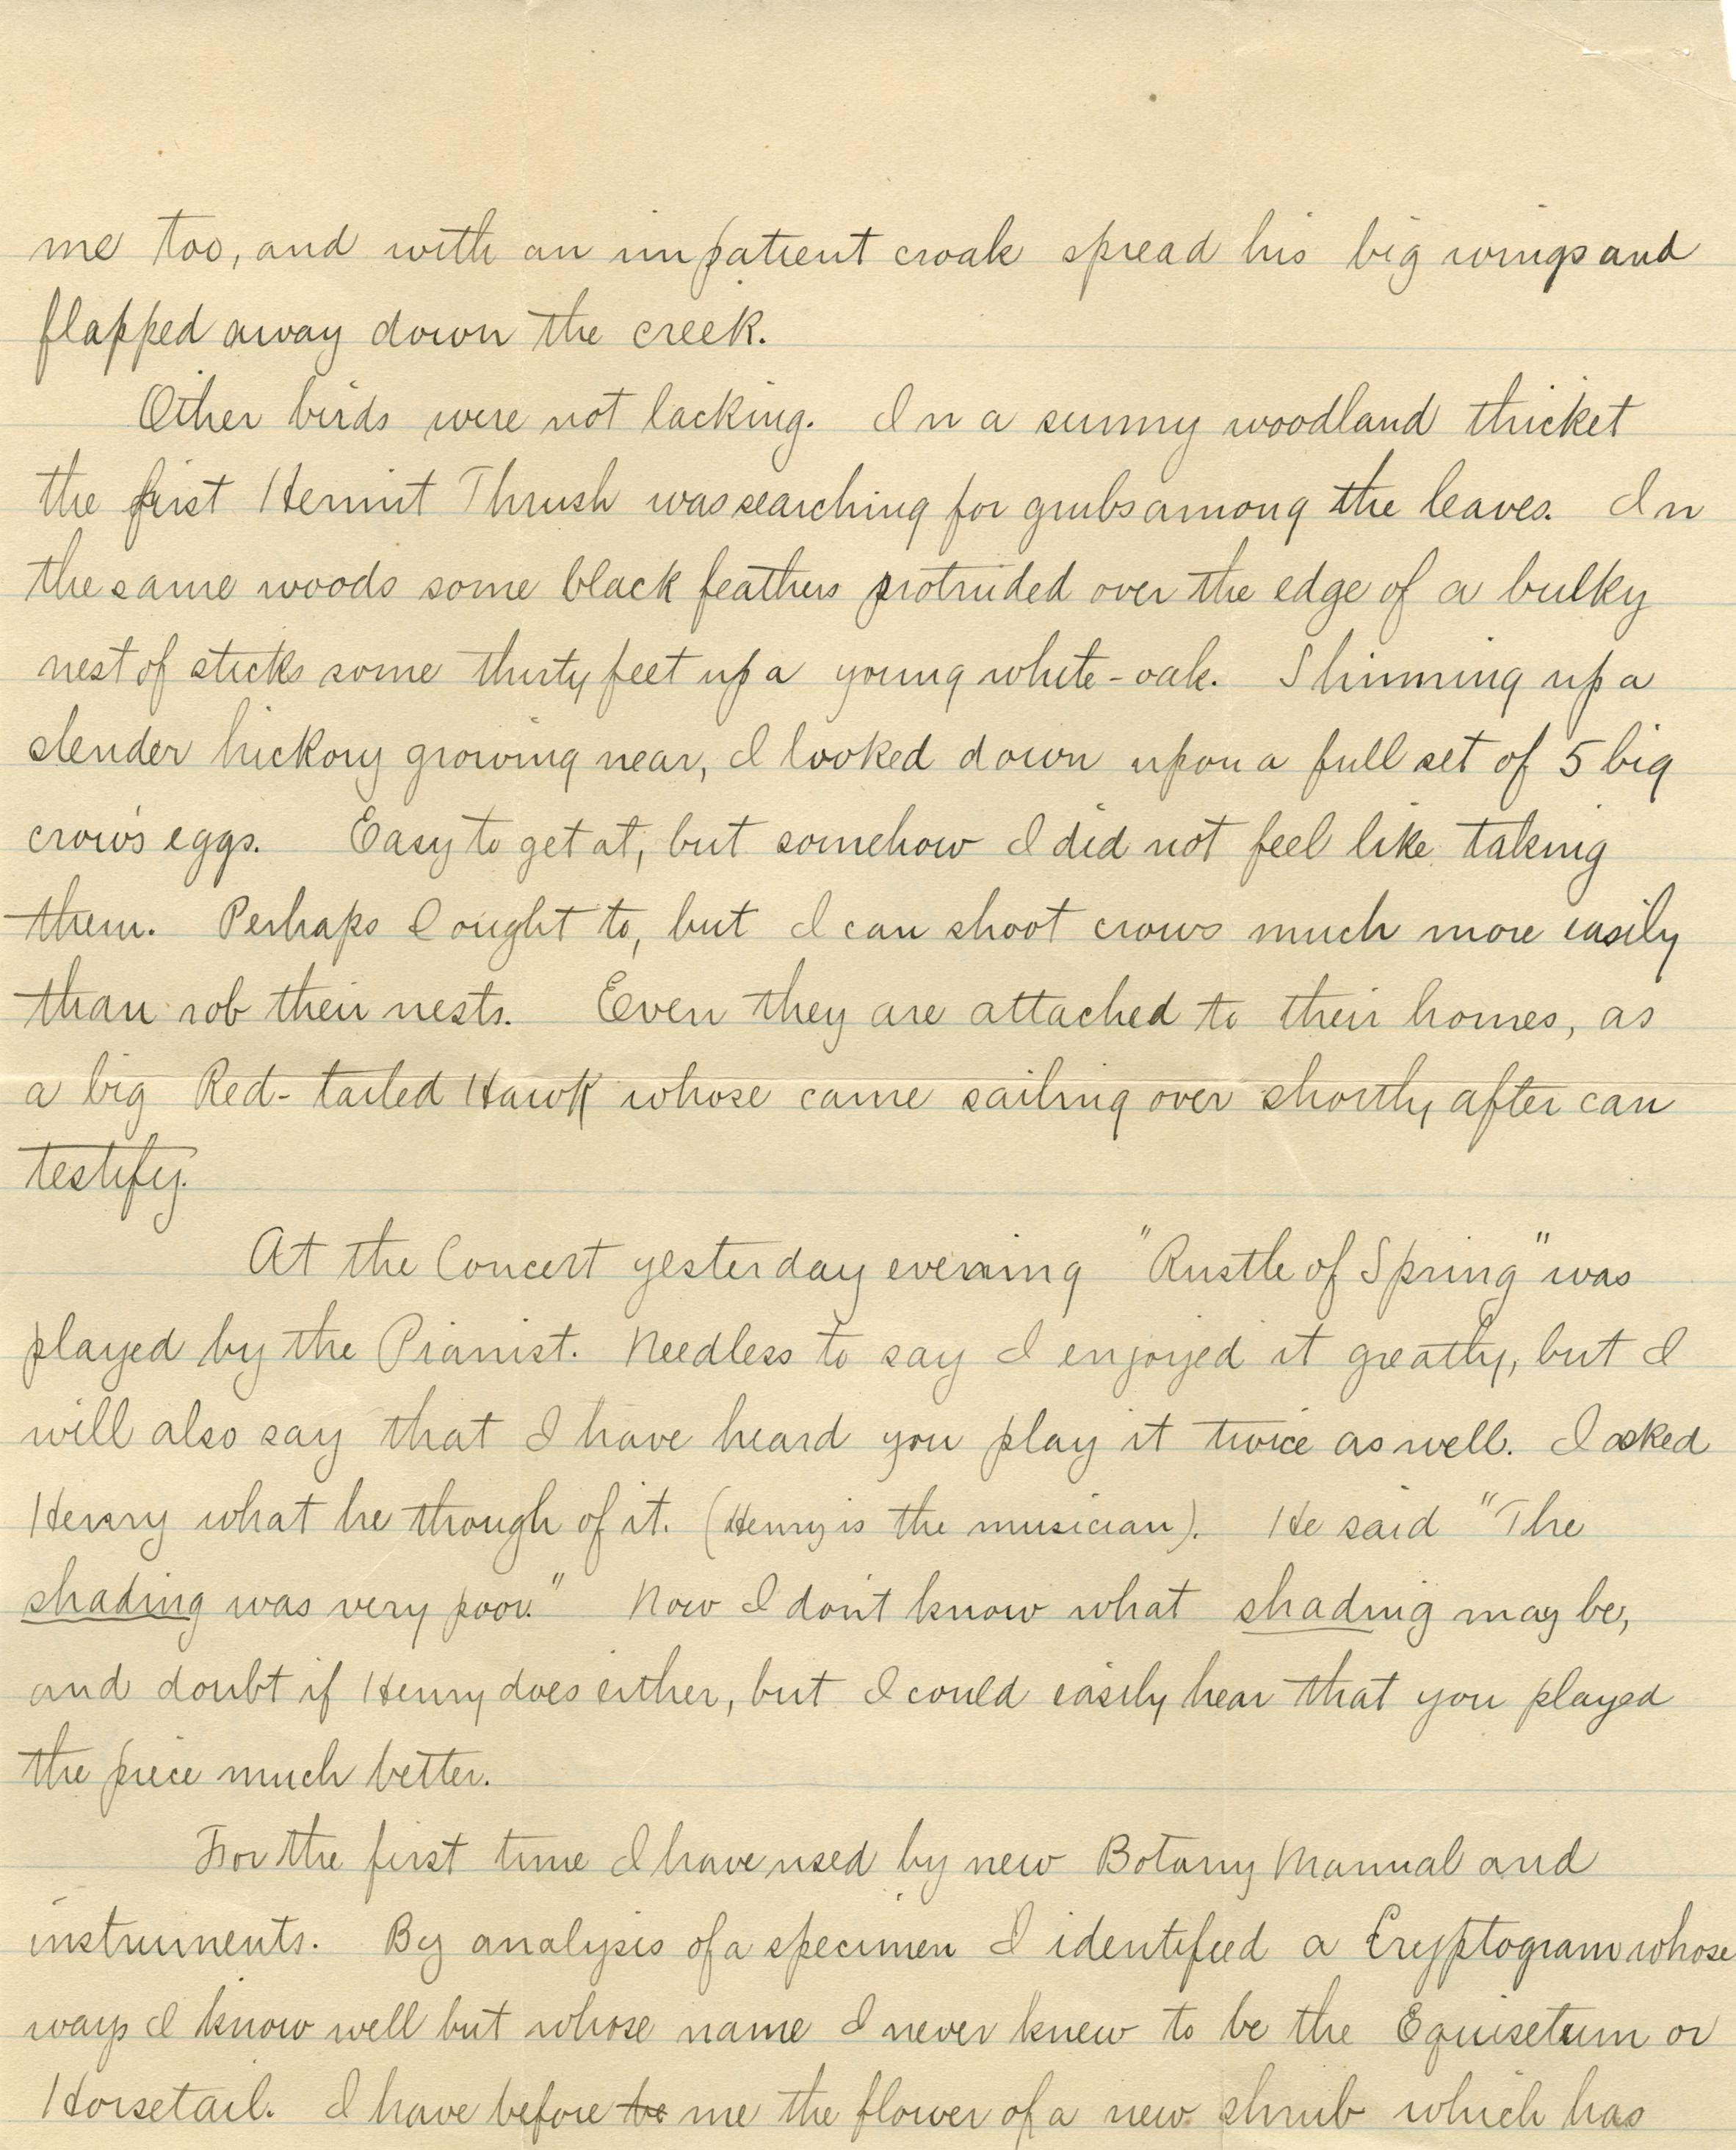 me too, and with an impatient croak spread his big wings and
flapped away down the creek.
Other birds were not lacking. In a sunny woodland thicket
the first Hermit Thrush was searching for grubs among the leaves. In
the same woods some black feathers protruded over the edge of a bulky
nest of sticks some thirty feet up a young white-oak. Shinning up a
slender hickory growing near, I looked down upon a full set of 5 big
crow's eggs. Easy to get at, but somehow I did not feel like taking
them. Perhaps I ought to, but I can shoot crows much more easily
than rob their nests. Even they are attached to their homes, as
a big Red-tailed Hawk whose came sailing over shortly after can
testify.
At the Concert yesterday evening "Rustle of Spring" was
played by the Pianist. Needless to say I enjoyed it greatly, but I
will also say that I have heard you play it twice as well. I asked
Henry what he though of it. (Henry is the musician). He said "The
shading was very poor." Now I don't know what shading may be,
and doubt if Henry does either, but I could easily hear that you played
the piece much better.
For the first time I have used by new Botany Manual and
instruments. By analysis of a specimen I identified a Cryptogram whose
ways I know well but whose name I never knew to be the Equisetum or
Horsetail. I have before be me the flower of a new shrub which has